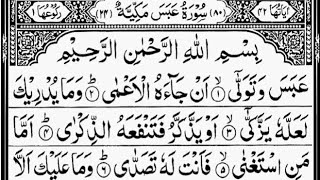 اٰیَاتُهَا ٤٢ (٨٠) سُوْرَةُ عَبَسَ مَكِّیَّةٌ (٢٤) رُكُوْعُهَا ١
بِسْمِ اللّٰهِ الرَّحْمٰنِ الرَّحِیْمِ
عَبَسَ وَتَوَلّٰۤی ۙ﴿١﴾ اَنْ جَآءَهُ الْاَعْمٰی ؕ﴿٢﴾ وَمَا یُدْرِیْكَ
لَعَلَّهٗ یَزَّكّٰۤی ۙ﴿٣﴾ اَوْ یَذَّكَّرُ فَتَنْفَعَهُ الذِّكْرٰی ؕ﴿٤﴾ اَمَّا
مَنِ اسْتَغْنٰی ۙ﴿٥﴾ فَاَنْتَ لَهٗ تَصَدّٰی ؕ﴿٦﴾ وَمَا عَلَیْكَ اَلَّا